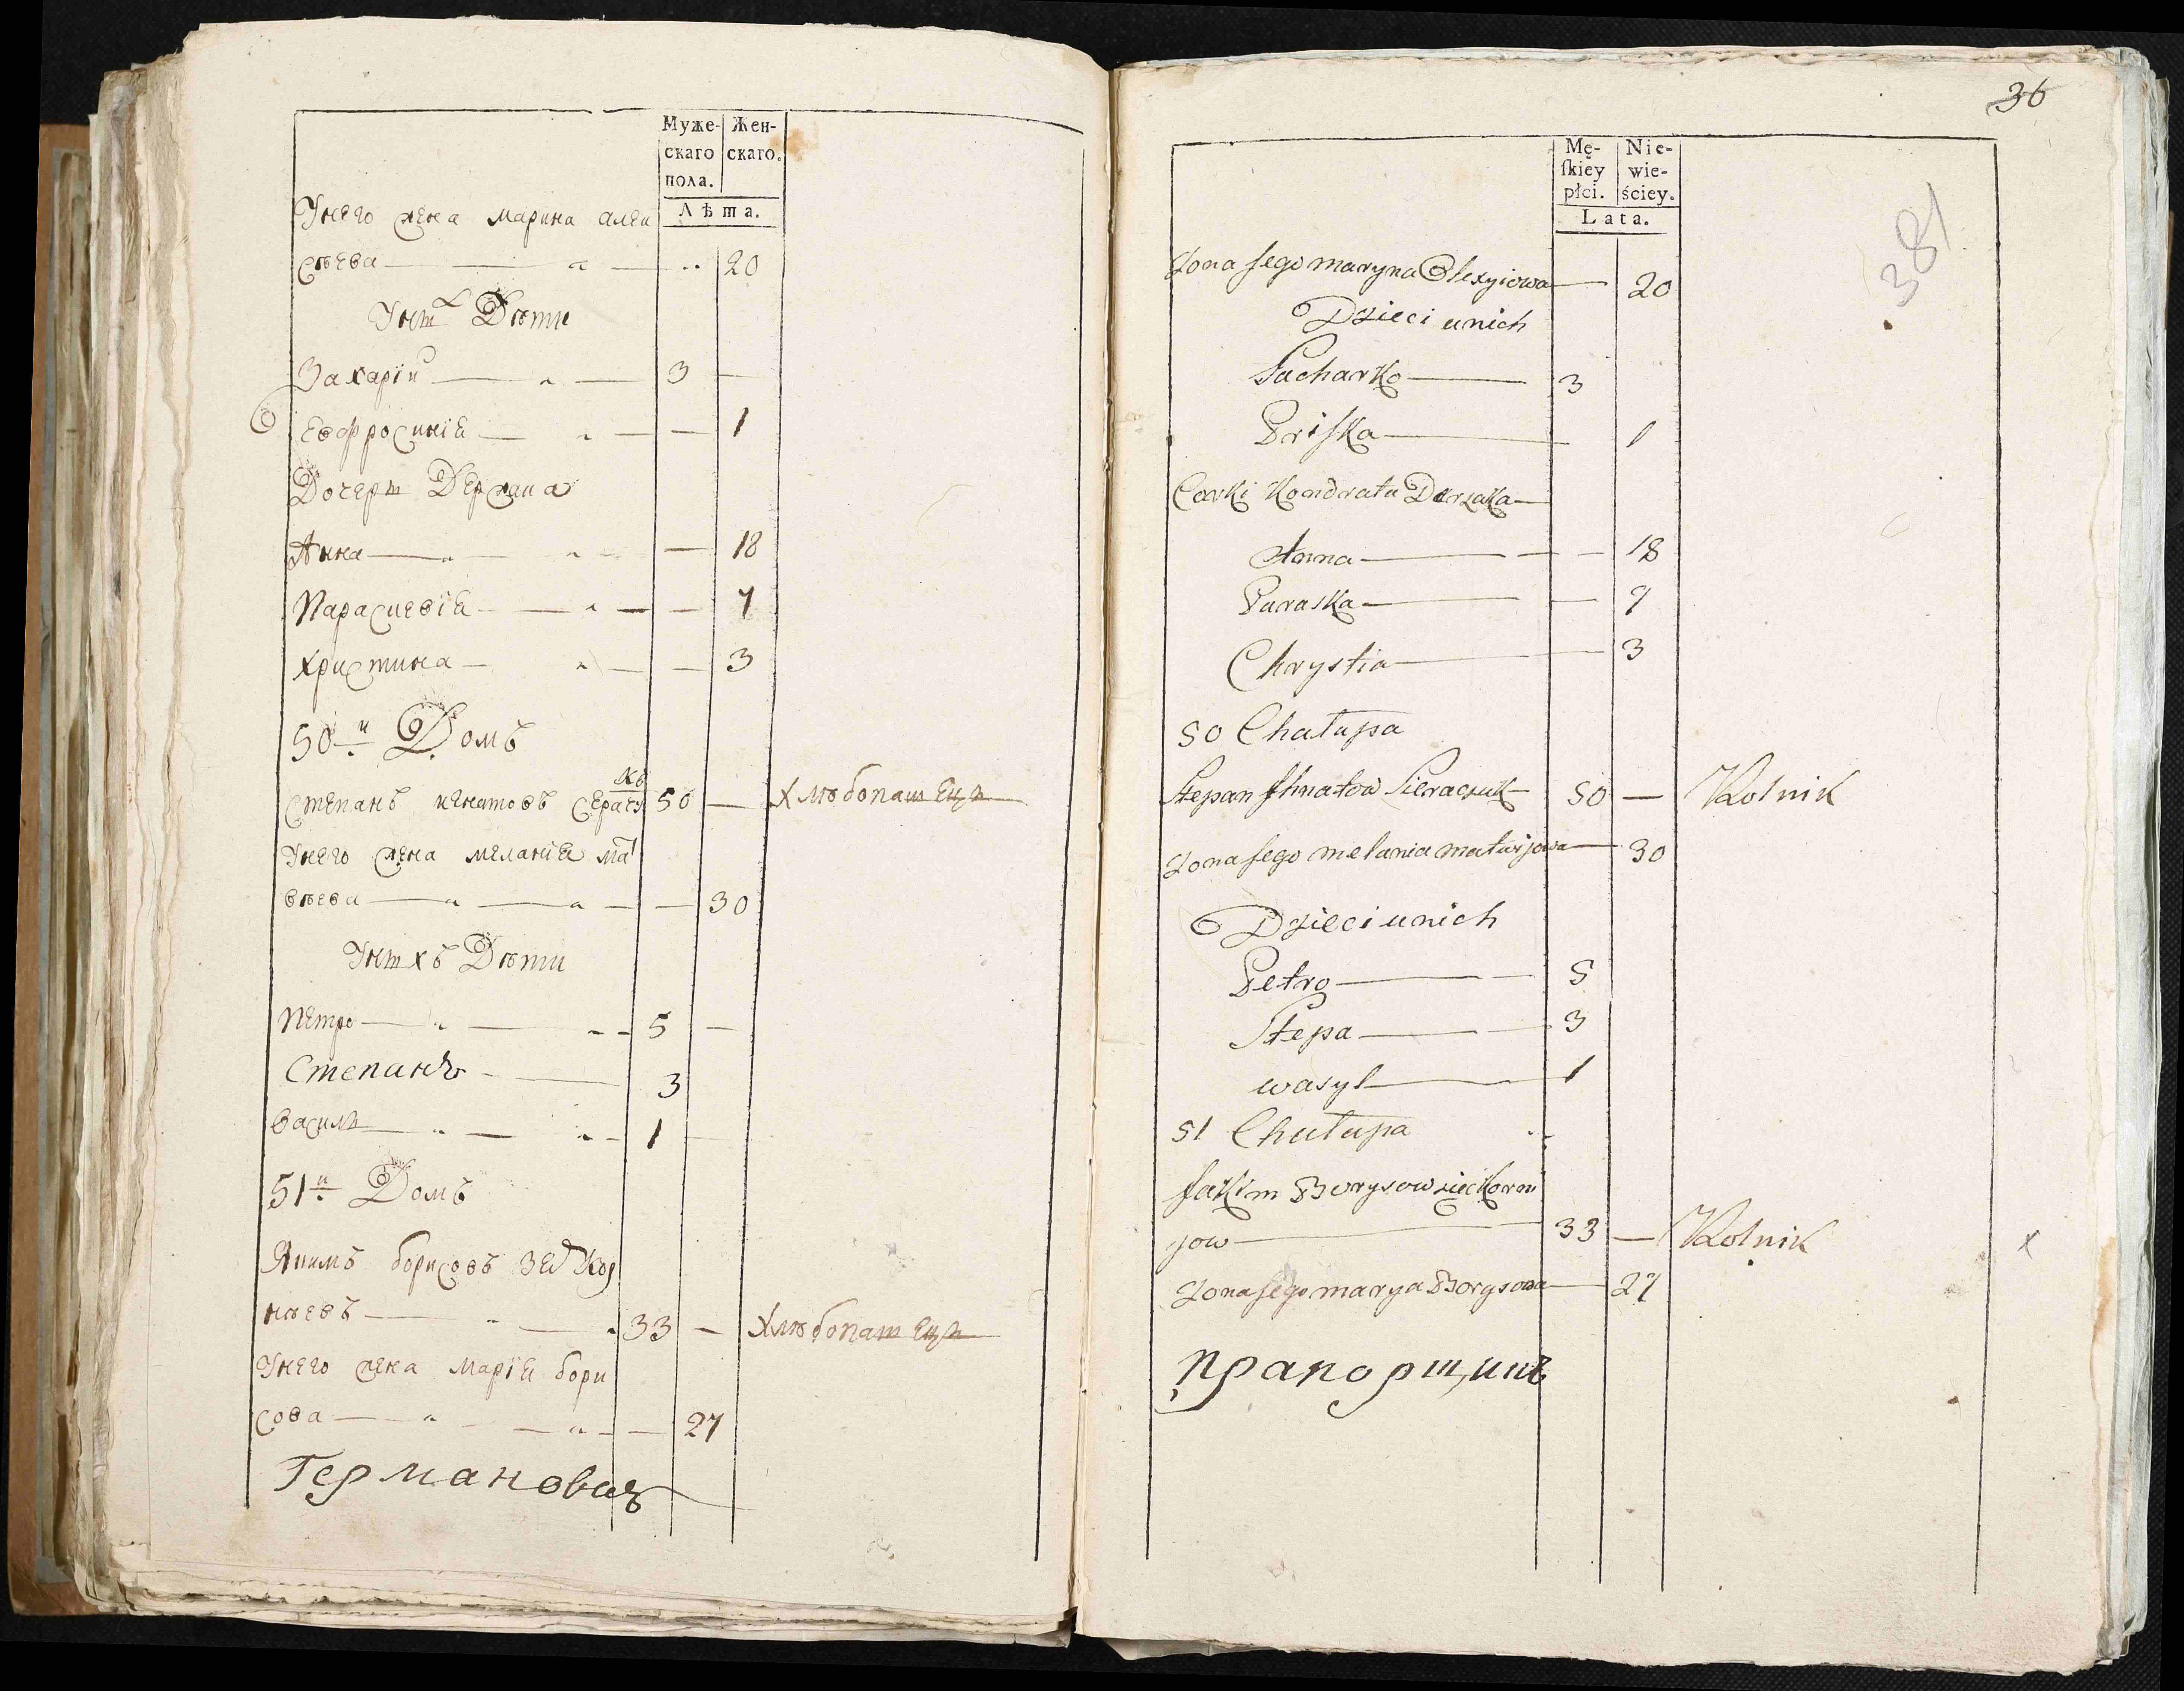 Муже- Жен-
скаго скаго.
пола.
Лѣта.
Унего жена марина алек
сѣева 20
Унихъ Дѣти
Захарій 3
Евфросинія 1
Дочери Держака
Анна 18
Параскевія 7
Христина 3
50й Домъ
Степанъ игнатовъ Серачукъ 50 — Хлѣбопашецъ
Унего жена меланія мат
вѣева 30
Унихъ Дѣти
Петро 5 —
Степанъ 3
Василь 1
51й Домъ
Якимъ борисовъ Зят Кор
нѣевъ 33 — Хлѣбопашецъ
Унего жена Марія бори
сова 27
Германовичъ
36
Mę- Nie-
ſkiéy wie-
płci. ściey.
Lata.
381
Zona Jego maryna Olexyiowa 20
Dzieci unich
Zacharko 3
Priska 1
Corki Kondrata Derzaka
Anna 18
Paraska 7
Chrystia 3
50 Chałupa
Stepan Ihnatow Sieraczuk 50 — Rolnik
Zona Jego melania matwijowa 30
Dzieci unich
Petro 5
Stepa 3
wasyl 1
51 Chałupa
Jakim Borysow zieć Korni
jow 33 — Rolnik x
Zona Jego marya Borysowa 27
прапорщикъ